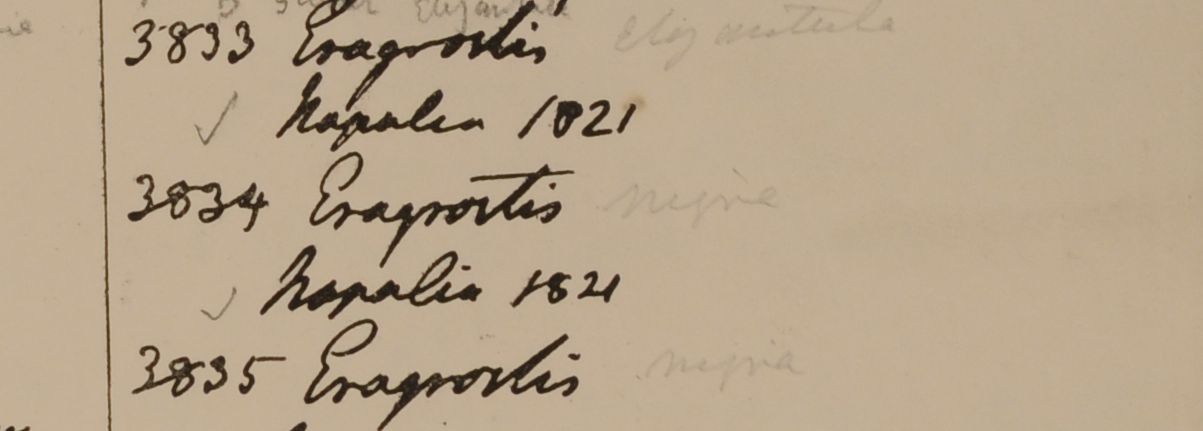 3833 Eragrostis
✓ Napalia 1821
3834 Eragrostis nigra
✓ Napalia 1821
3835 Eragrostis nigra